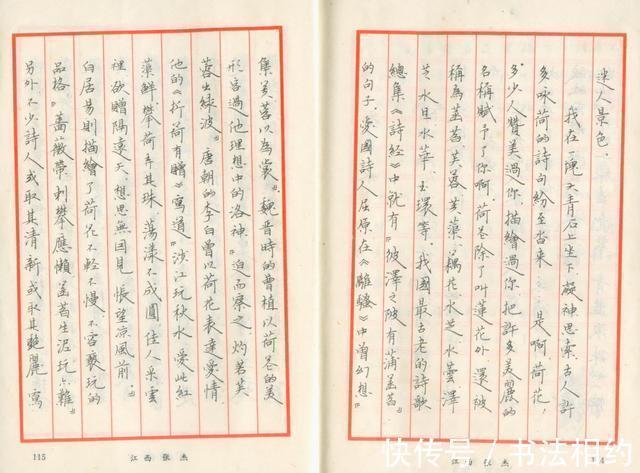 迷人景色。
我在一塊大青石上坐下，凝神思索，古人許
多咏荷的詩句紛至沓來……是啊，荷花，
多少人贊美過你，描繪過你，把許多美麗的
名稱賦予了你啊。荷卷除了叫蓮花外，還被
稱爲菡萏、芙蓉、芙蕖、藕花、水芝、水芸、澤
芝、水旦、水華、玉環等，我國最古老的詩歌
總集《詩經》中就有"彼澤之陂有蒲菡萏"
的句子，愛國詩人屈原在《離騷》中曾幻想
江西 张杰
集芙蓉以爲裳。魏晋時的曹植以荷卷的美
形容過他理想中的洛神"迫而察之，灼若芙
蓉出緑波"。唐朝的李白曾以荷花表達愛情，
他的《折荷有贈》寫道"涉江玩秋水，愛此紅
蕖鮮，攀荷弄其珠，蕩漾不成圓，佳人采雲
裡，欲贈隔遠天，想思無因見，悵望凉風前"。
白居易則描繪了荷花不輕不慢，不容褻玩的
品格："薔薇帶刺攀應懶，菡萏生泥玩亦難"
另外不少詩人或取其清新，或取其艷麗，寫
115
江西 张杰
快传号/书法相约